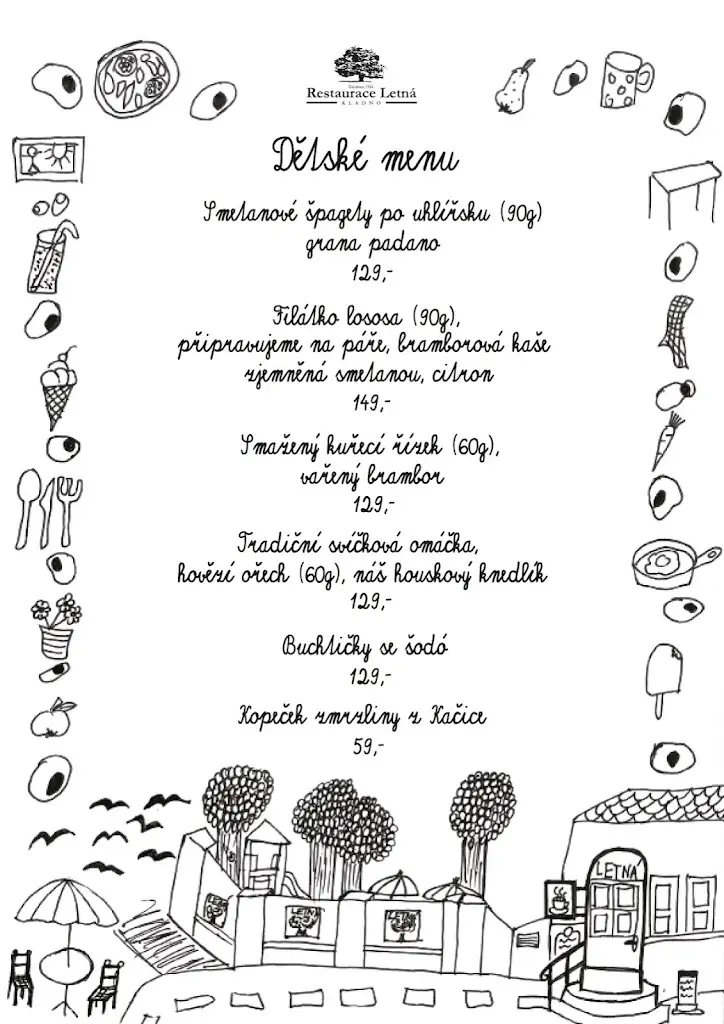 Restaurace Letná
KLADNO
Dětské menu
Smetanové špagety po uhlířsku (90g)
grana padano
129,-
Filátko lososa (90g),
připravujeme na páře, bramborová kaše
zjemněná smetanou, citron
149,-
Smažený kuřecí řízek (60g),
vařený brambor
129,-
Tradiční svíčková omáčka,
hovězí ořech (60g), náš houskový knedlík
129,-
Buchtičky se šodó
129,-
Kopeček zmrzliny z Kačice
59,-
LETNÁ
LETNÁ
LETNÁ